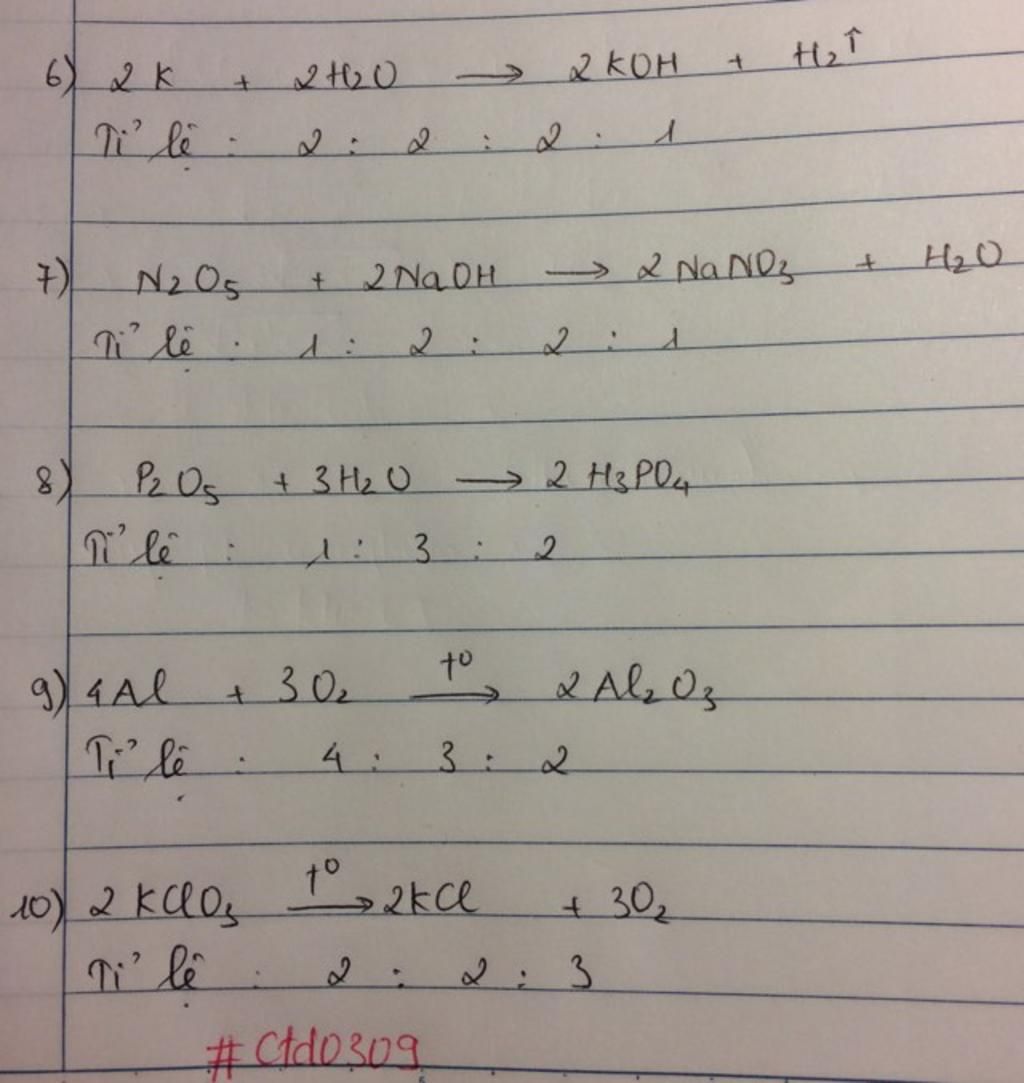 6) 2K + 2H₂O → 2KOH + H₂↑
Tỉ lệ : 2 : 2 : 2 : 1
7) N₂O₅ + 2NaOH → 2NaNO₃ + H₂O
Tỉ lệ : 1 : 2 : 2 : 1
8) P₂O₅ + 3H₂O → 2H₃PO₄
Tỉ lệ : 1 : 3 : 2
9) 4Al + 3O₂ –t⁰→ 2Al₂O₃
Tỉ lệ : 4 : 3 : 2
10) 2KClO₃ –t⁰→ 2KCl + 3O₂
Tỉ lệ : 2 : 2 : 3
#Ctd0309